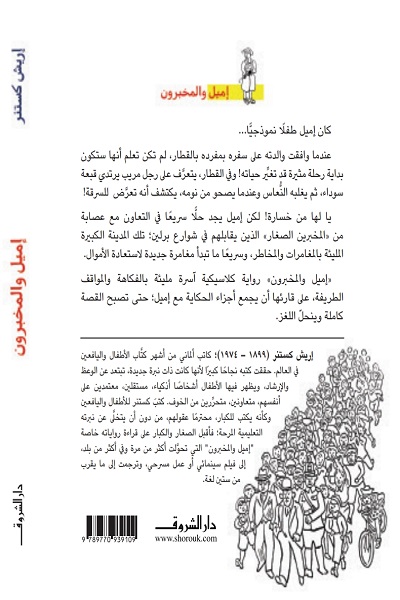 إريش كستنر
إميل والمخبرون
دار الشروق
إميل والمخبرون
كان إميل طفلًا نموذجيًّا...
عندما وافقت والدته على سفره بمفرده بالقطار، لم تكن تعلم أنها ستكون
بداية رحلة مثيرة قد تغيُّر حياته! وفي القطار، يتعرَّف على رجل مريب يرتدي قبعة
سوداء، ثم يغلبه النُّعاس وعندما يصحو من نومه، يكتشف أنه تعرَّض للسرقة!
يا لها من خسارة! لكن إميل يجد حلًّا سريعًا في التعاون مع عصابة
من «المخبرين الصغار» الذين يقابلهم في شوارع برلين؛ تلك المدينة الكبيرة
المليئة بالمغامرات والمخاطر، وسريعًا ما تبدأ مغامرة جديدة لاستعادة الأموال.
«إميل والمخبرون» رواية كلاسيكية آسرة مليئة بالفكاهة والمواقف
الطريفة، على قارئها أن يجمع أجزاء الحكاية مع إميل؛ حتى تصبح القصة
كاملة وينحلّ اللغز.
إريش كستنر (١٨٩٩ – ١٩٧٤)؛ كاتب ألماني من أشهر كتَّاب الأطفال واليافعين
في العالم. حققت كتبه نجاحًا كبيرًا لأنها كانت ذات نبرة جديدة، تبتعد عن الوعظ
والإرشاد، ويظهر فيها الأطفال أشخاصًا أذكياء، مستقلين، معتمدين على
أنفسهم، متعاونين، متحرِّرين من الخوف. كتبَ كستنر للأطفال واليافعين
وكأنه يكتب للكبار، محترمًا عقولهم، من دون أن يتخلَّى عن نبرته
التعليمية المرحة؛ فأقبل الصغار والكبار على قراءة رواياته خاصة
"إميل والمخبرون" التي تحوَّلت أكثر من مرة وفي أكثر من بلد،
إلى فيلم سينمائي أو عمل مسرحي، وترجمت إلى ما يقرب
من ستين لغة.
دار الشروق
www.shorouk.com
9 789770 939109